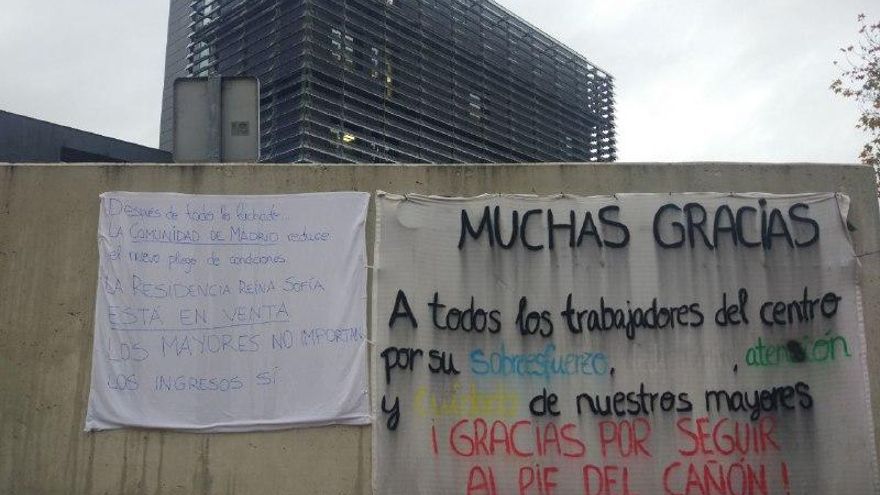 Después de todo lo luchado...
LA COMUNIDAD DE MADRID reduce
el nuevo pliego de condiciones.
LA RESIDENCIA REINA SOFÍA
ESTÁ EN VENTA
LOS MAYORES NO IMPORTAN
LOS INGRESOS SÍ
MUCHAS GRACIAS
A todos los trabajadores del centro
por su sobreesfuerzo, , atención
y cuidado de nuestros mayores
¡GRACIAS POR SEGUIR
AL PIE DEL CAÑÓN!